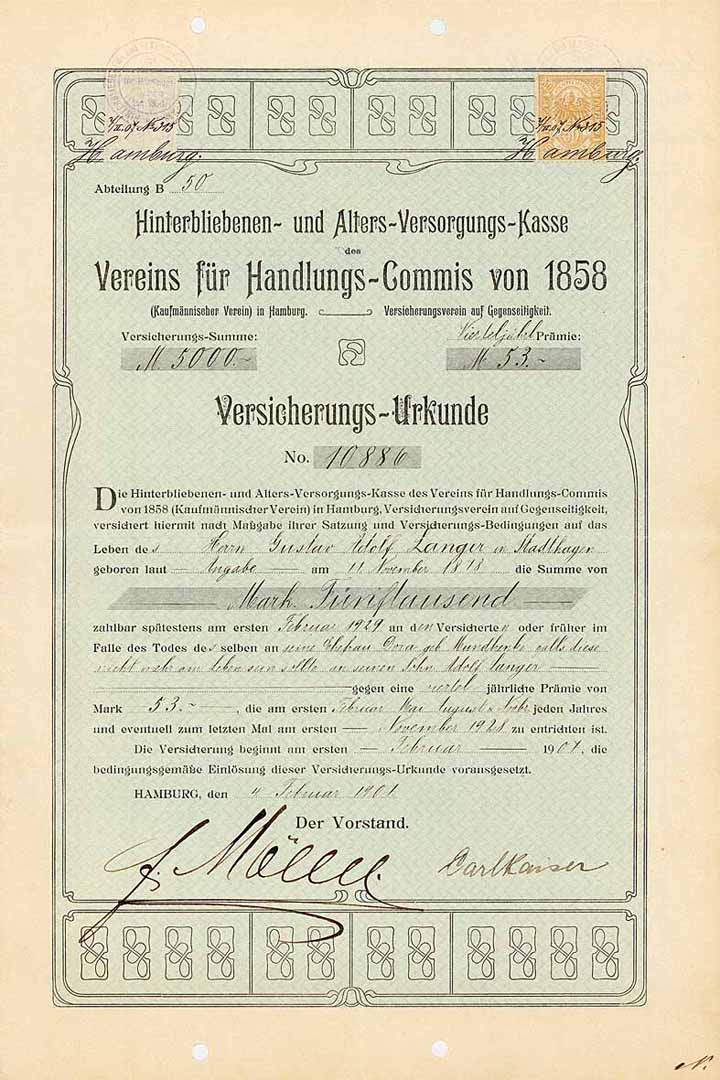 4/II.07 No 315 4/II.07 No 315
Hamburg. Hamburg.
Abteilung B 50
Hinterbliebenen- und Alters-Versorgungs-Kasse
des
Vereins für Handlungs-Commis von 1858
(Kaufmännischer Verein) in Hamburg. Versicherungsverein auf Gegenseitigkeit.
Versicherungs-Summe: Vierteljährl Prämie:
M 5000.- M 53.-
Versicherungs-Urkunde
No. 10886
Die Hinterbliebenen- und Alters-Versorgungs-Kasse des Vereins für Handlungs-Commis
von 1858 (Kaufmännischer Verein) in Hamburg, Versicherungsverein auf Gegenseitigkeit,
versichert hiermit nach Maßgabe ihrer Satzung und Versicherungs-Bedingungen auf das
Leben des Herrn Gustav Adolf Langer in Stadthagen
geboren laut Angabe am 11 November 1878 die Summe von
Mark Fünftausend
zahlbar spätestens am ersten Februar 1929 an den Versicherten oder früher im
Falle des Todes desselben an seine Ehefrau Dora geb. falls diese
nicht mehr am Leben sein sollte an seinen Sohn Adolf Langer
gegen eine viertel jährliche Prämie von
Mark 53.-, die am ersten Februar Mai August u. Novbr jeden Jahres
und eventuell zum letzten Mal am ersten November 1928 zu entrichten ist.
Die Versicherung beginnt am ersten Februar 1907, die
bedingungsgemäße Einlösung dieser Versicherungs-Urkunde vorausgesetzt.
HAMBURG, den 4 Februar 1907
Der Vorstand.
Carl Kaiser
N.